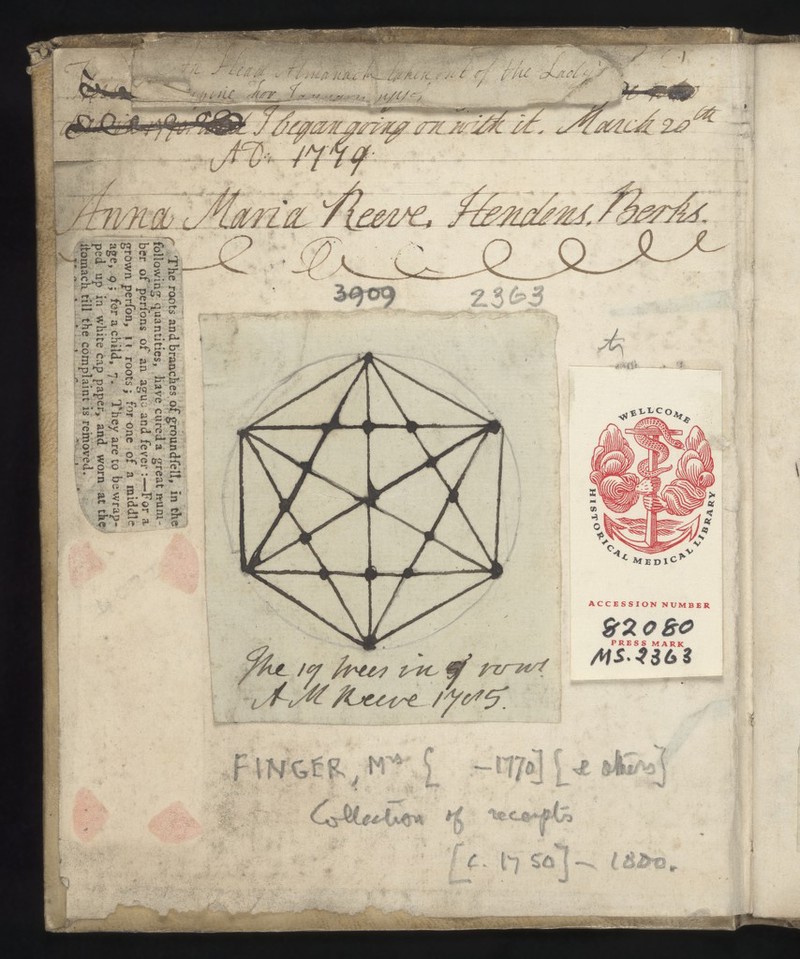 Head Almanack taken out of the Lady's
I began going on with it. March 20th
AD: 1779.
Anna Maria Reeve, Hendens. Berks.
3909 2363
The roots and branches of groundsell, in the
following quantities, have cured a great num-
ber of persons of an ague and fever:—For a
grown person, 11 roots; for one of a middle
age, 9; for a child, 7. They are to be wrap-
ped up in white cap paper, and worn at the
stomach till the complaint is removed.
The 19 trees in 9 rows
A M Reeve 1785.
WELLCOME
HISTORICAL MEDICAL LIBRARY
ACCESSION NUMBER
82080
PRESS MARK
MS. 2363
FINGER, Mrs [ -1770] [& others]
Collection of receipts
[c. 1750] – 1800.